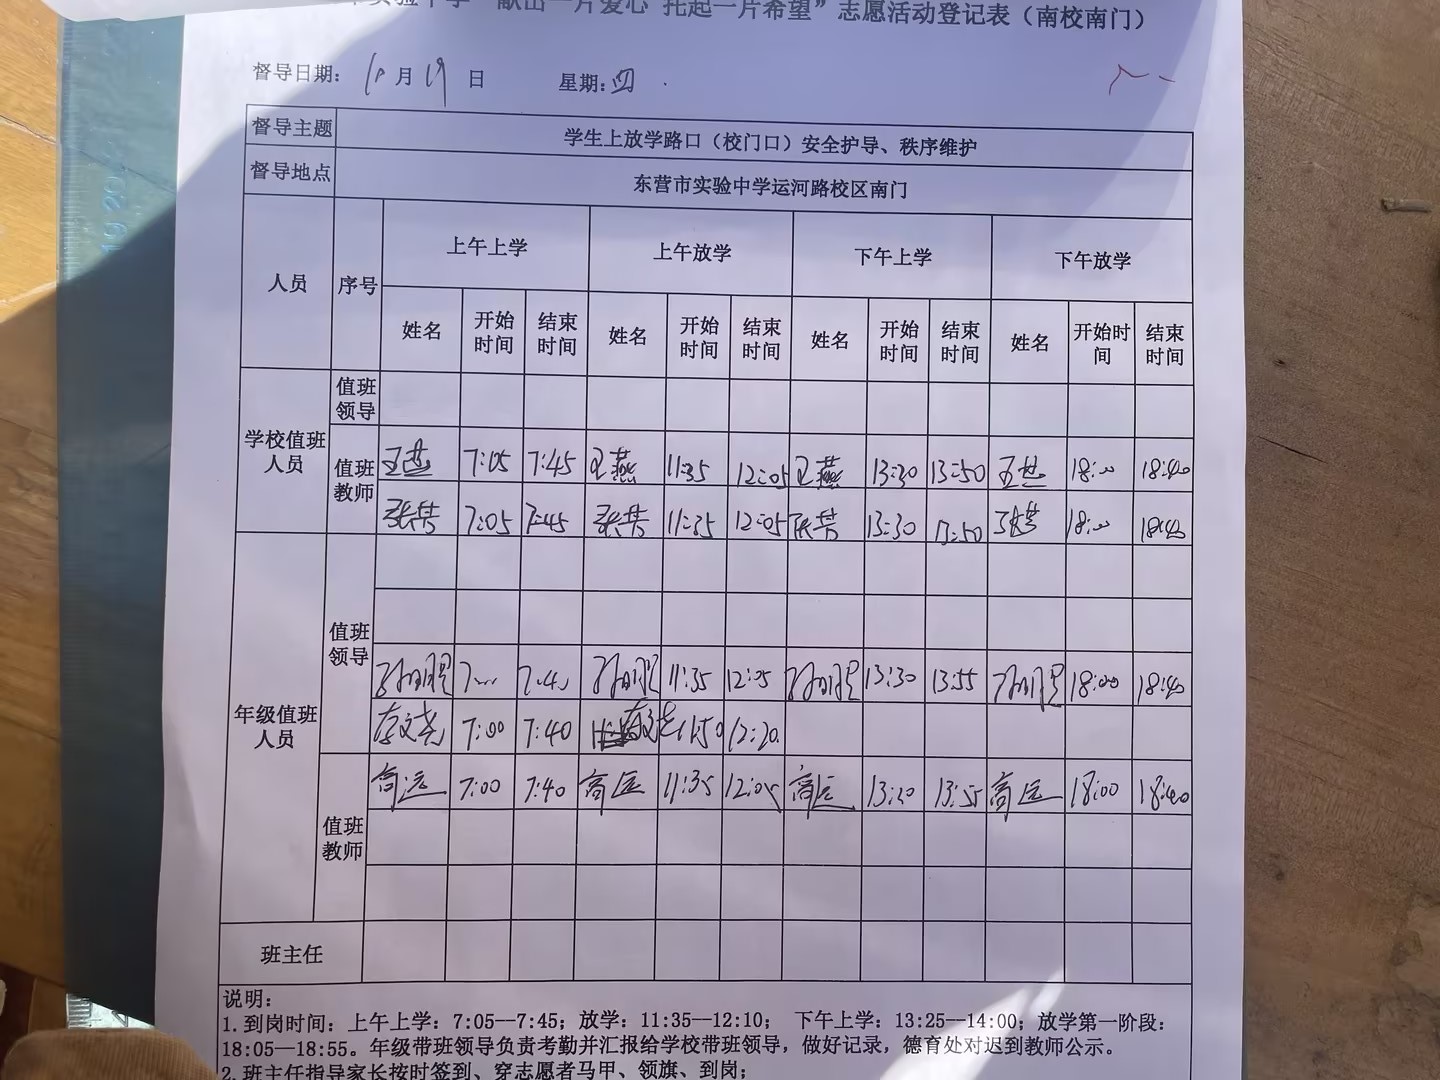 实验中学“献出一片爱心 托起一片希望”志愿活动登记表（南校南门）
督导日期： 10月19日 星期：四
督导主题 学生上放学路口（校门口）安全护导、秩序维护
督导地点 东营市实验中学运河路校区南门
人员 序号 上午上学 上午放学 下午上学 下午放学
姓名 开始时间 结束时间 姓名 开始时间 结束时间 姓名 开始时间 结束时间 姓名 开始时间 结束时间
学校值班人员 值班领导
值班教师 王燕 7:05 7:45 王燕 11:35 12:05 王燕 13:30 13:50 王燕 18:00 18:40
张芳 7:05 7:45 张芳 11:35 12:05 张芳 13:30 13:50 张芳 18:00 18:40
年级值班人员 值班领导
7:40 11:35 12:05 13:30 13:55 18:00 18:40
李文尧 7:00 7:40 李文尧 11:50 12:20
值班教师 高远 7:00 7:40 高远 11:35 12:05 高远 13:30 13:55 高远 18:00 18:40
班主任
说明：
1.到岗时间：上午上学：7:05--7:45；放学：11:35--12:10； 下午上学：13:25--14:00；放学第一阶段：
18:05--18:55。年级带班领导负责考勤并汇报给学校带班领导，做好记录，德育处对迟到教师公示。
2.班主任指导家长按时签到、穿志愿者马甲、领旗、到岗；